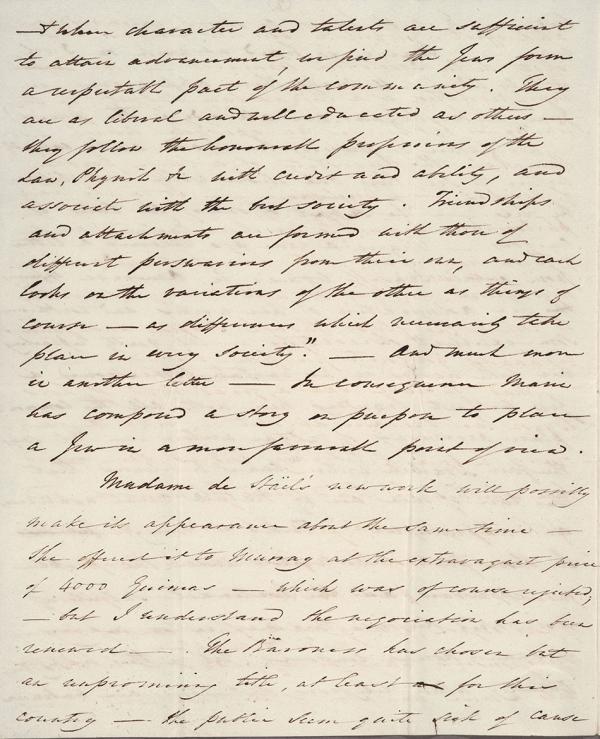 — & when character and talents are sufficient
to attain advancement, we find the Jews form
a respectable part of the community. They
are as liberal and well educated as others —
they follow the honourable professions of the
Law, Physick &c with credit and ability, and
associate with the best society. Friendships
and attachments are formed with those of
different perswasions from their own, and each
looks on the variations of the other as things of
course — as differences which necessarily take
place in every society." — And much more
in another letter — In consequence Maria
has composed a story on purpose to place
a Jew in a more favourable point of view.
Madame de Stäel's new work will possibly
make its appearance about the same time —
She offered it to Murray at the extravagant price
of 4000 Guineas — which was of course rejected;
— but I understand the negociation has been
renewed —. The Baroness has chosen but
an unpromising title, at least for this
country — the public seem quite sick of cause